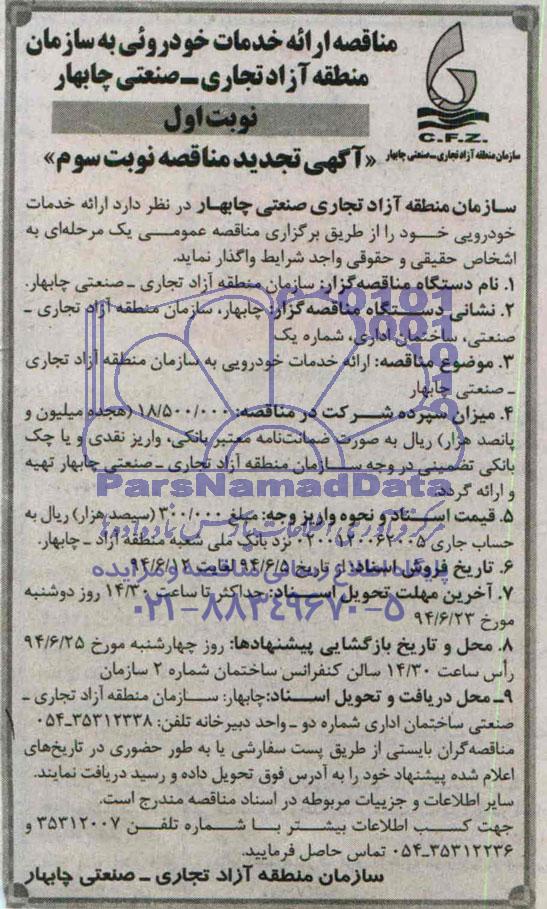 مناقصه ارائه خدمات خودروئی به سازمان
منطقه آزاد تجاری ـ صنعتی چابهار
نوبت اول
«آگهی تجدید مناقصه نوبت سوم»
C.F.Z.
سازمان منطقه آزاد تجاری ـ صنعتی چابهار
سازمان منطقه آزاد تجاری صنعتی چابهار در نظر دارد ارائه خدمات
خودرویی خود را از طریق برگزاری مناقصه عمومی یک مرحله‌ای به
اشخاص حقیقی و حقوقی واجد شرایط واگذار نماید.
۱. نام دستگاه مناقصه‌گزار: سازمان منطقه آزاد تجاری ـ صنعتی چابهار.
۲. نشانی دستگاه مناقصه‌گزار: چابهار، سازمان منطقه آزاد تجاری ـ
صنعتی، ساختمان اداری، شماره یک
۳. موضوع مناقصه: ارائه خدمات خودرویی به سازمان منطقه آزاد تجاری
ـ صنعتی چابهار
۴. میزان سپرده شرکت در مناقصه: ۱۸/۵۰۰/۰۰۰ (هجده میلیون و
پانصد هزار) ریال به صورت ضمانت‌نامه معتبر بانکی، واریز نقدی و یا چک
بانکی تضمینی در وجه سازمان منطقه آزاد تجاری ـ صنعتی چابهار تهیه
و ارائه گردد.
ParsNamadData
۵. قیمت اسناد و نحوه واریز وجه: مبلغ ۳۰۰/۰۰۰ (سیصد هزار) ریال به
حساب جاری نزد بانک ملی شعبه منطقه آزاد ـ چابهار.
۶. تاریخ فروش اسناد: از تاریخ ۹۴/۶/۵ لغایت ۹۴/۶/۱۲
پایگاه اطلاع رسانی مناقصه و مزایده
۷. آخرین مهلت تحویل اسناد: حداکثر تا ساعت ۱۴/۳۰ روز دوشنبه
مورخ ۹۴/۶/۲۳
۰۲۱-۸۸۳۴۹۶۷۰-۵
۸. محل و تاریخ بازگشایی پیشنهادها: روز چهارشنبه مورخ ۹۴/۶/۲۵
رأس ساعت ۱۴/۳۰ سالن کنفرانس ساختمان شماره ۲ سازمان
۹ـ محل دریافت و تحویل اسناد: چابهار: سازمان منطقه آزاد تجاری ـ
صنعتی ساختمان اداری شماره دو ـ واحد دبیرخانه تلفن: ۳۵۳۱۲۳۳۸ـ۰۵۴
مناقصه‌گران بایستی از طریق پست سفارشی یا به طور حضوری در تاریخ‌های
اعلام شده پیشنهاد خود را به آدرس فوق تحویل داده و رسید دریافت نمایند.
سایر اطلاعات و جزییات مربوطه در اسناد مناقصه مندرج است.
جهت کسب اطلاعات بیشتر با شماره تلفن ۳۵۳۱۲۰۰۷ و
۳۵۳۱۲۲۳۶ـ۰۵۴ تماس حاصل فرمایید.
سازمان منطقه آزاد تجاری ـ صنعتی چابهار